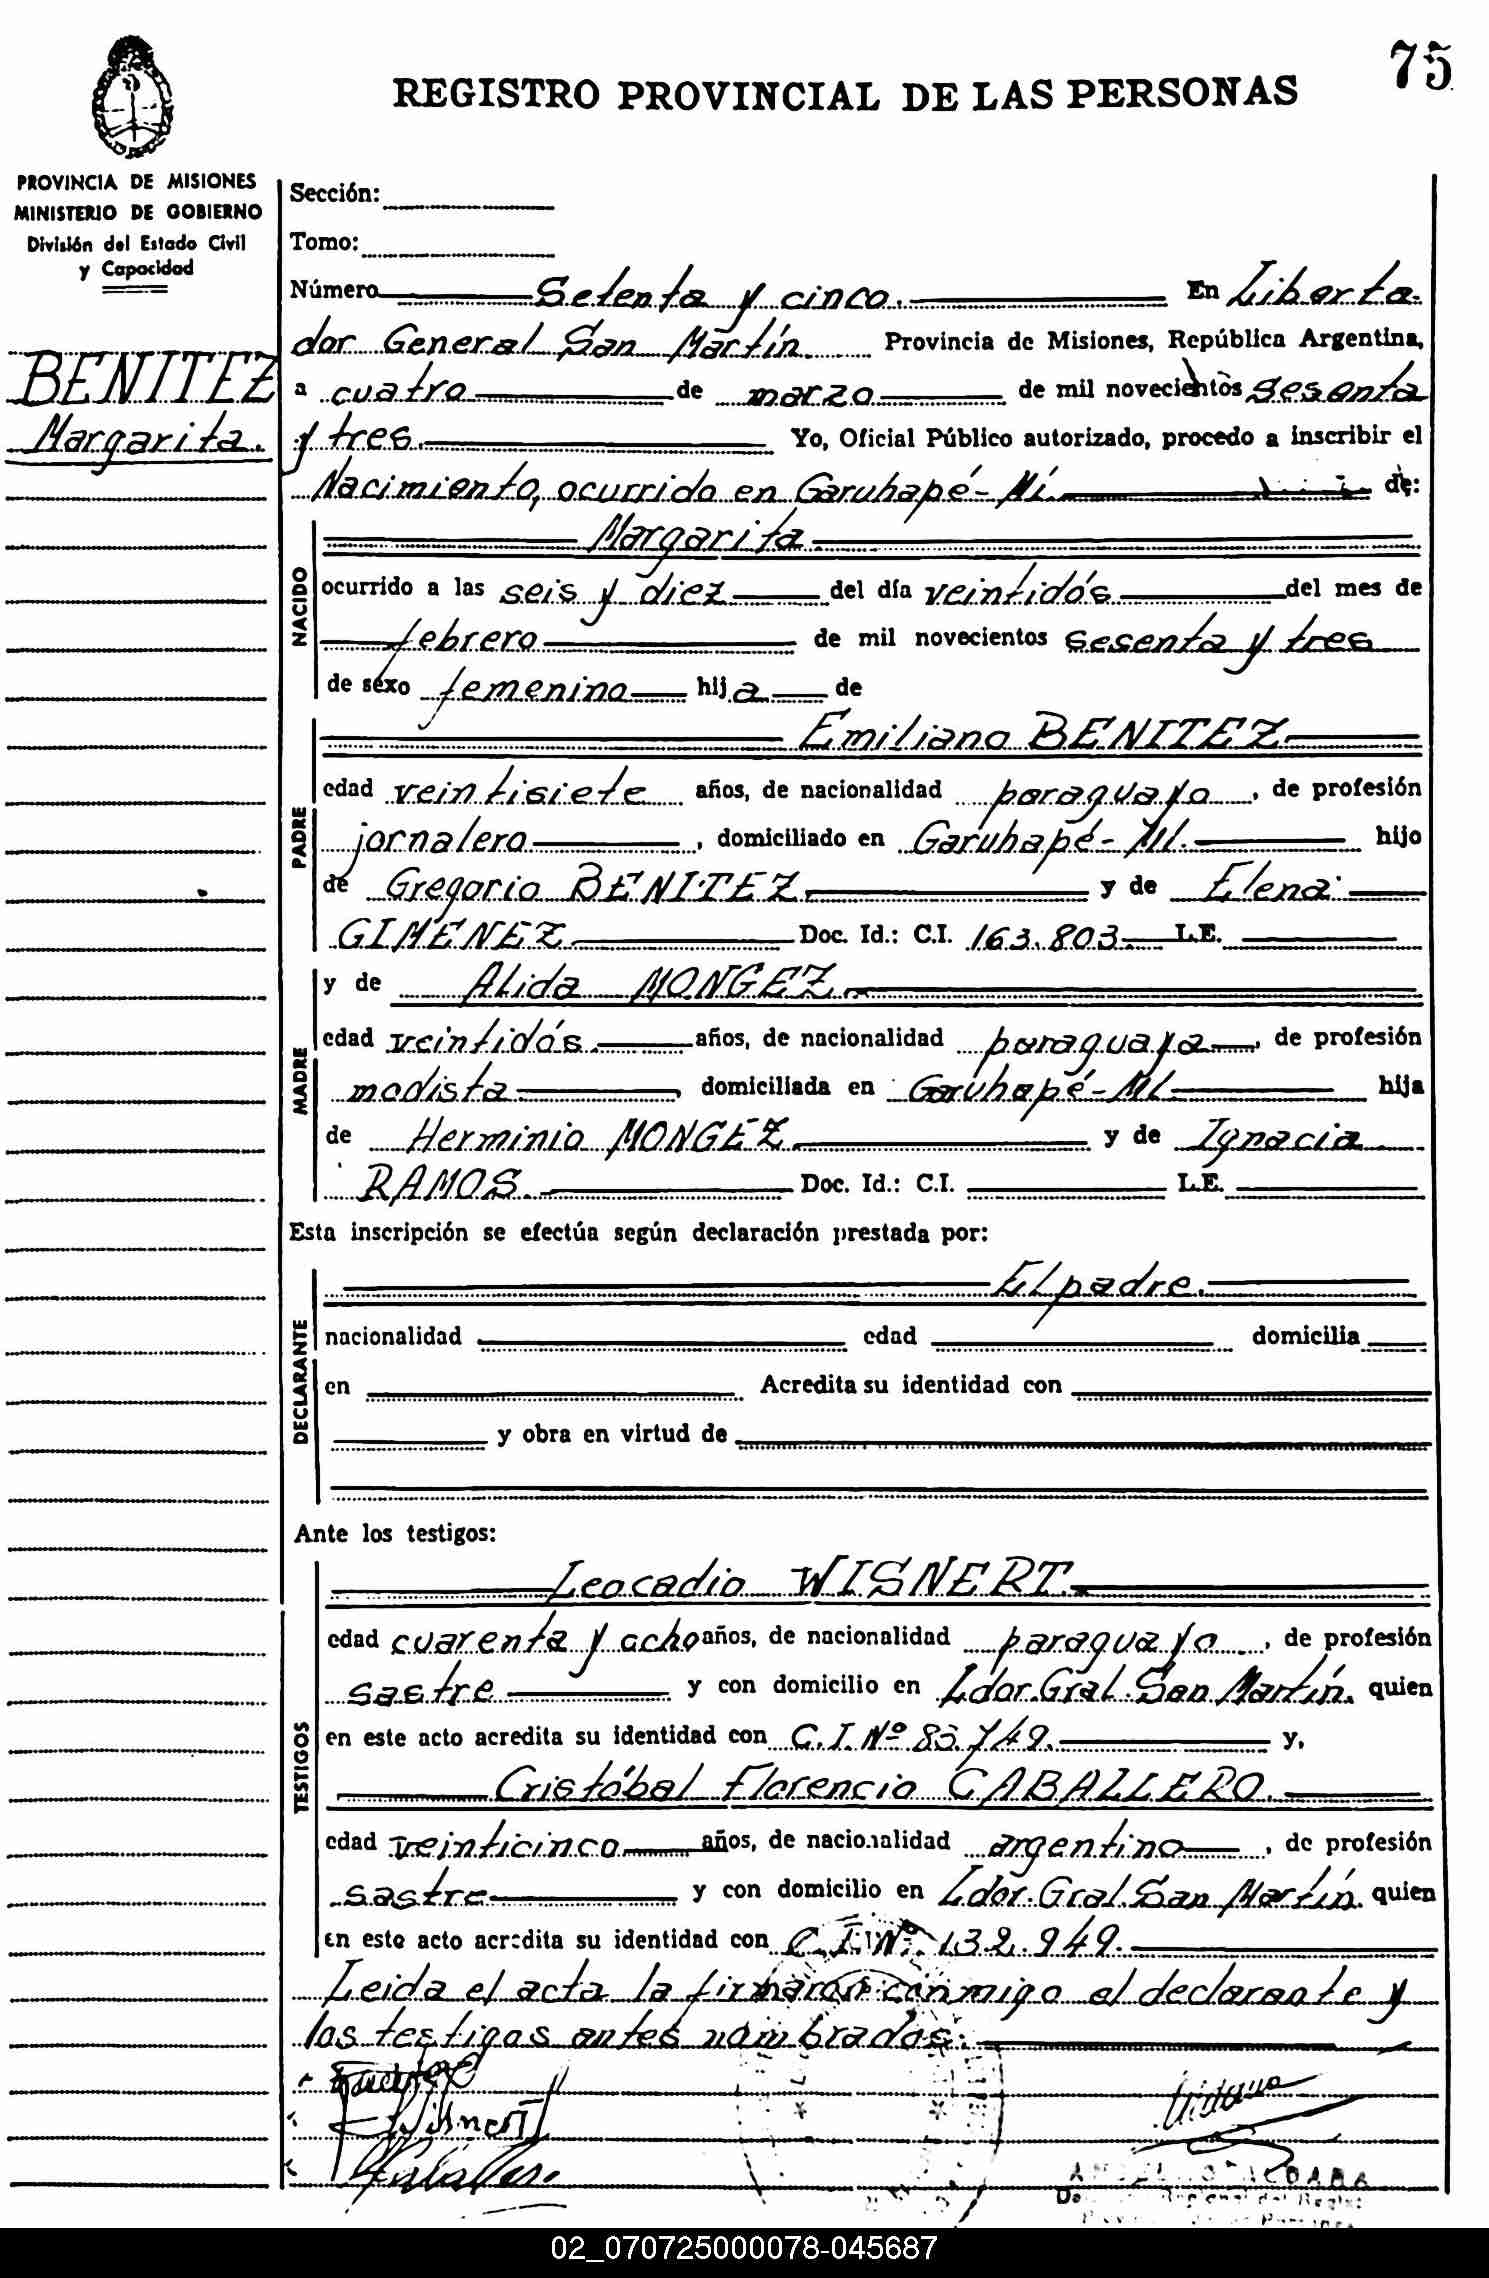 75
REGISTRO PROVINCIAL DE LAS PERSONAS
PROVINCIA DE MISIONES
MINISTERIO DE GOBIERNO
División del Estado Civil
y Capacidad
BENITEZ
Margarita.
Sección:
Tomo:
Número Setenta y cinco. En Liberta-
dor General San Martín. Provincia de Misiones, República Argentina,
a cuatro de marzo de mil novecientos sesenta
y tres. Yo, Oficial Público autorizado, procedo a inscribir el
Nacimiento, ocurrido en Garuhapé-Mí. de:
NACIDO
Margarita.
ocurrido a las seis y diez del día veintidós del mes de
febrero de mil novecientos sesenta y tres
de sexo femenino hija de
PADRE
Emiliano BENITEZ
edad veintisiete años, de nacionalidad paraguayo, de profesión
jornalero, domiciliado en Garuhapé-Mí. hijo
de Gregorio BENITEZ y de Elena
GIMENEZ Doc. Id.: C.I. 163.803. L.E.
MADRE
y de Alida MONGEZ.
edad veintidós. años, de nacionalidad paraguaya, de profesión
modista, domiciliada en Garuhapé-Mí hija
de Herminio MONGEZ y de Ignacia
RAMOS. Doc. Id.: C.I. L.E.
Esta inscripción se efectúa según declaración prestada por:
DECLARANTE
El padre.
nacionalidad edad domicilia
en Acredita su identidad con
y obra en virtud de
Ante los testigos:
TESTIGOS
Leocadio WISNERT.
edad cuarenta y ocho años, de nacionalidad paraguayo, de profesión
sastre y con domicilio en Ldor. Gral. San Martín. quien
en este acto acredita su identidad con C.I. Nº 83.749. y,
Cristóbal Florencio CABALLERO.
edad veinticinco años, de nacionalidad argentino, de profesión
sastre y con domicilio en Ldor. Gral. San Martín. quien
en este acto acredita su identidad con C.I. Nº 132.949.
Leida el acta la firmaron conmigo el declarante y
los testigos antes nombrados.
02_070725000078-045687